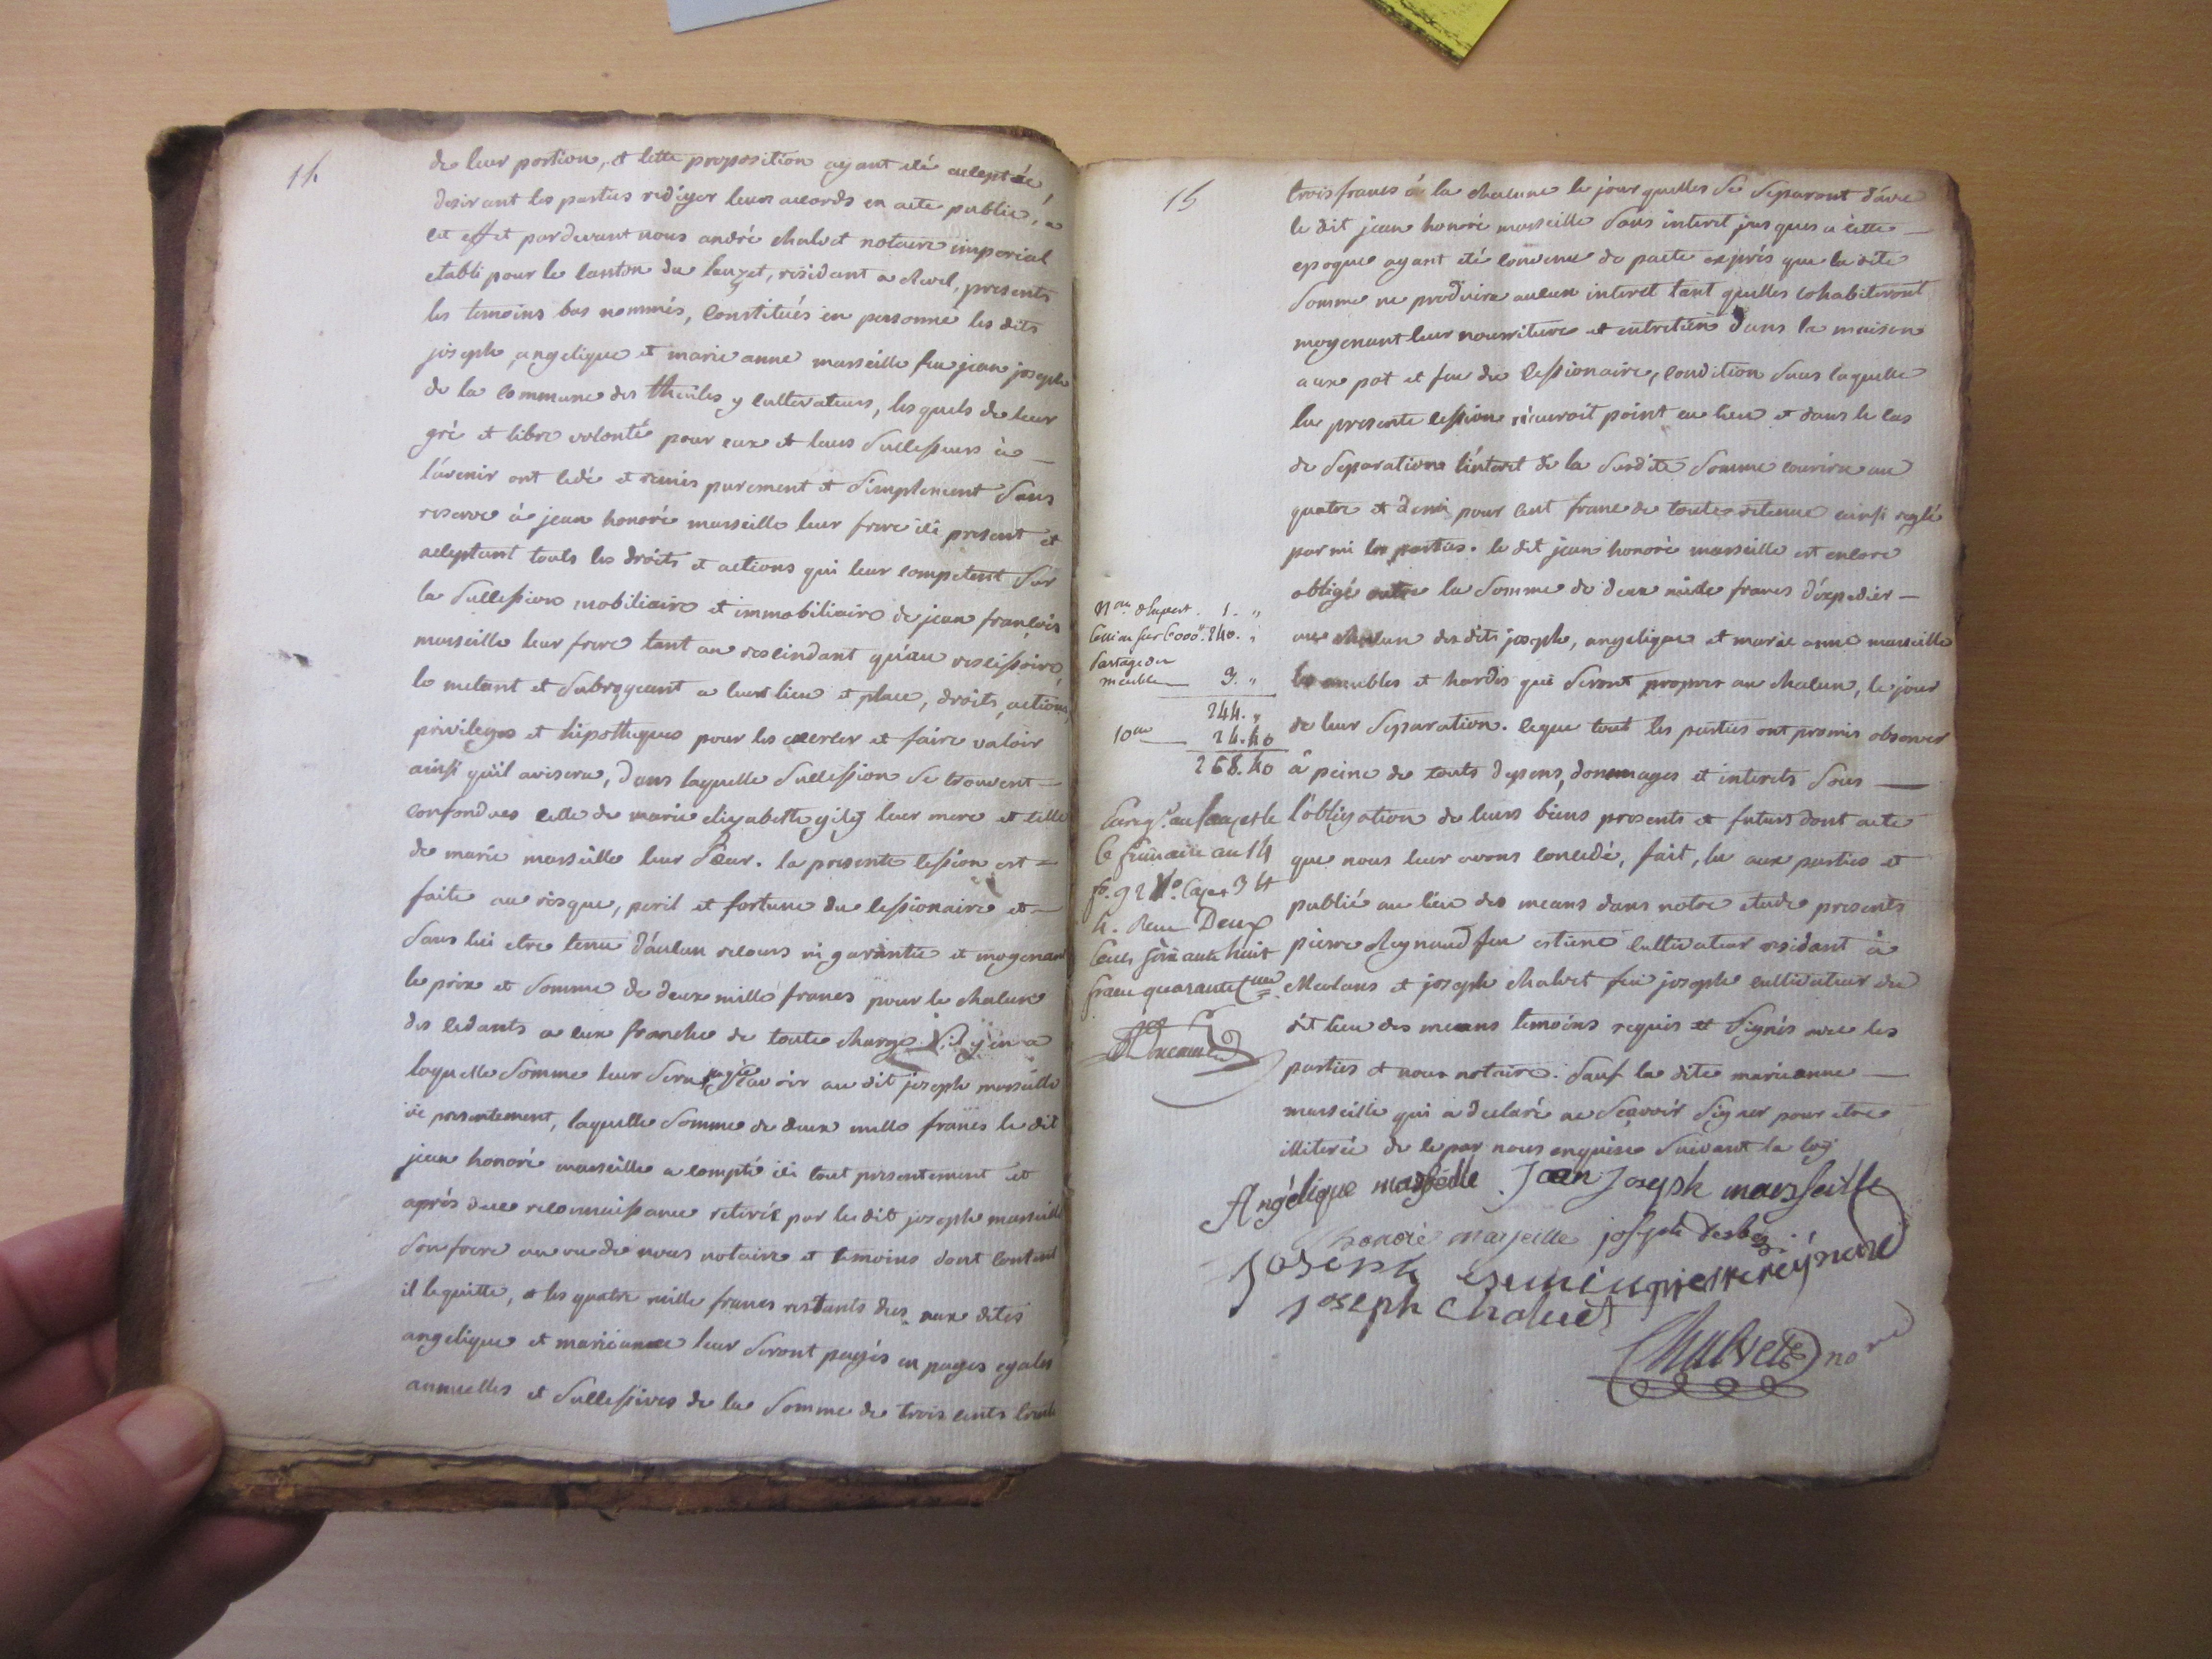 14
de leur portion, et cette proposition ayant eté acceptée,
desirant les parties rediger leurs accords en acte public, a
cet effet pardevant nous andré chalvet notaire imperial
etabli pour le canton du lauzet, residant a revel, presents
les temoins bas nommés, constitués en personne les dits
joseph, angelique et marie anne marseille feu jean joseph
de la commune des thuiles y cultivateurs, les quels de leur
gré et libre volonté pour eux et leurs successeurs à
l'avenir ont cedé et remis purement et simplement sans
reserve à jean honoré marseille leur frere ici present et
acceptant touts les droits et actions qui leur competent sur
la succession mobiliaire et immobiliaire de jean françois
marseille leur frere tant au rescindant qu'au rescisoire,
le metant et subrogeant a leur lieu et place, droits, actions,
privileges et hipotheques pour les exercer et faire valoir
ainsi qu'il avisera, dans laquelle succession se trouvent
confondues celle de marie elizabeth gilly leur mere et celle
de marie marseille leur sœur. la presente cession est
faite au risque, peril et fortune du cessionaire et
sans lui etre tenu d'aucun recours ni garantie et moyenant
le prix et somme de deux mille francs pour le chacun
des cedants a eux franche de toute charge s'il y en a
laquelle somme leur sera payée savoir au dit joseph marseille
ici presentement, laquelle somme de deux mille francs le dit
jean honoré marseille a compté ici tout presentement et
après due reconnaissance retirée par le dit joseph marseille
son frere au vu de nous notaire et temoins dont content
il le quitte, et les quatre mille francs restants dus aux dites
angelique et marie anne leur seront payés en payes egales
annuelles et successives de la somme de trois cents trente
15
trois francs à la chacune le jour quelles se separont d'avec
le dit jean honoré marseille sans interet jusques à cette
epoque ayant eté convenu de pacte exprès que la dite
somme ne produira aucun interet tant quelles cohabiteront
moyenant leur nourriture et entretien dans la maison
aux pot et feu du cessionaire, condition sans laquelle
la presente cession n'auroit point eu lieu et dans le cas
de separation l'interet de la susdite somme courira au
quatre et demi pour cent franc de toute retenue ainsi reglé
parmi les parties. le dit jean honoré marseille est encore
obligé outre la somme de deux mille francs d'expedier
au chacun des dits joseph, angelique et marie anne marseille
les meubles et hardes qui seront propres au chacun, le jour
de leur separation. ceque tout les parties ont promis observer
à peine de touts depens, dommages et interets sous
l'obligation de leurs biens presents et futurs dont acte
que nous leur avons concedé, fait, lu aux parties et
publié au lieu des means dans notre etude presents
pierre Reynaud feu estiene cultivateur residant à
Meolans et joseph chalvet feu joseph cultivateur du
dit lieu des means temoins requis et signés avec les
parties et nous notaire. sauf la dite marie anne
marseille qui a declaré ne sçavoir signer pour etre
illiterée de ce par nous enquise suivant la loy
1. "
240. "
partage de
meuble 3. "
244. "
10me 24.40
268.40
enregé. au lauzet le
6 frimaire an 14
fo. 92 Vo. Case 3 et
4. Reçu Deux
cents soixante huit
francs quarante cmes
Angélique marseille Jean Joseph marseille
honoré marseille joseph
Joseph pierre reynaud
Joseph Chalvet
Chalvet nore